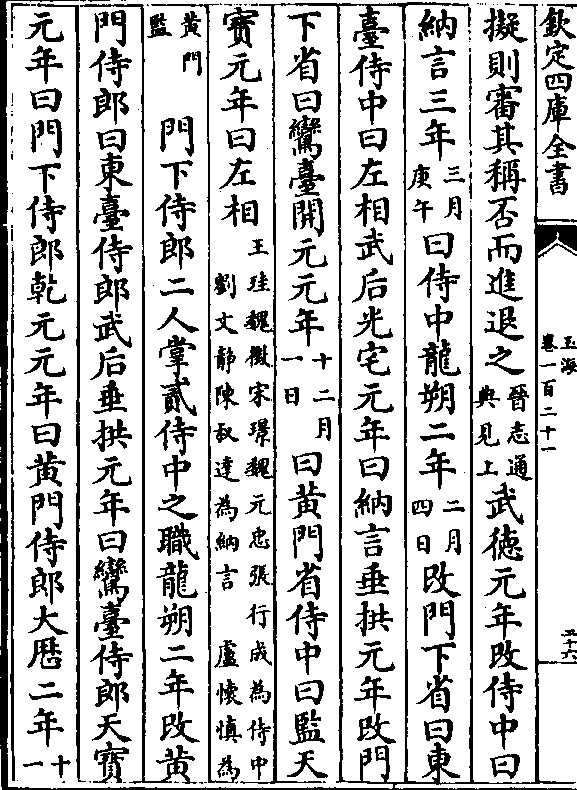 欽定四庫全書
玉海
卷一百二十一
三十六
擬則審其稱否而進退之晉志通典見上武德元年改侍中曰
納言三年三月庚午曰侍中龍朔二年二月四日改門下省曰東
臺侍中曰左相武后光宅元年曰納言垂拱元年改門
下省曰鸞臺開元元年十二月一日曰黃門省侍中曰監天
寶元年曰左相王珪魏徵宋璟魏元忠張行成為侍中劉文靜陳叔達為納言 盧懷慎為
黃門監 門下侍郎二人掌貳侍中之職龍朔二年改黃
門侍郎曰東臺侍郎武后垂拱元年曰鸞臺侍郎天寶
元年曰門下侍郎乾元元年曰黃門侍郎大厯二年十一